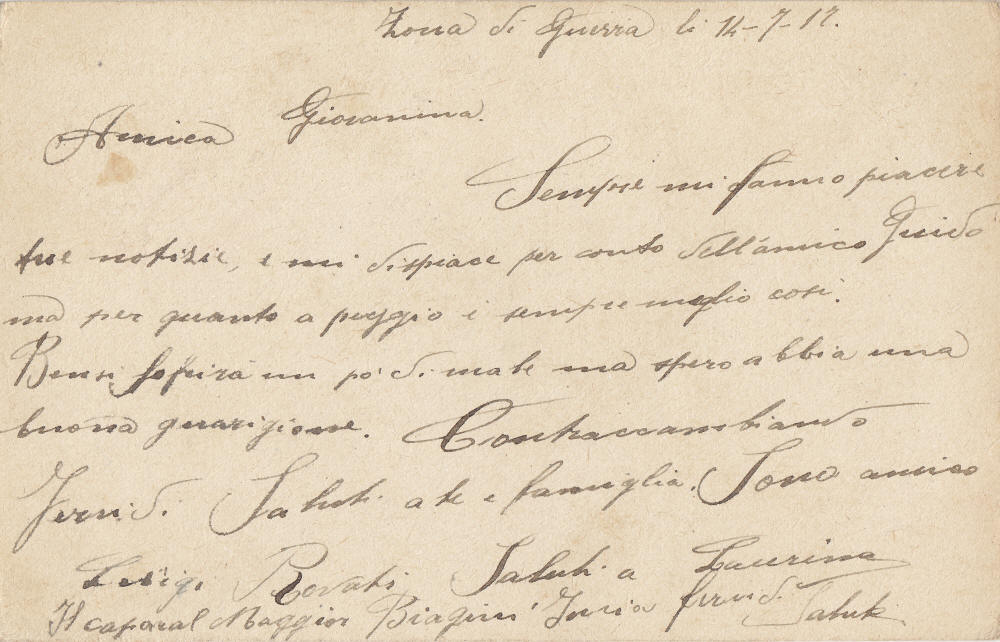 Zona di Guerra li 14-7-17.
Amica Giovanina.
Sempre mi fanno piacere
tue notizie, e mi dispiace per conto dell'amico Guido
ma per quanto a peggio è sempre meglio così.
Bensi soffrirà un po' di male ma spero abbia una
buona guarigione. Contraccambiando
Fervidi Saluti a te e famiglia. Sono amico
Luigi Rovati Saluti a Laurina
Il caporal Maggior Biagini Invia fervidi Saluti